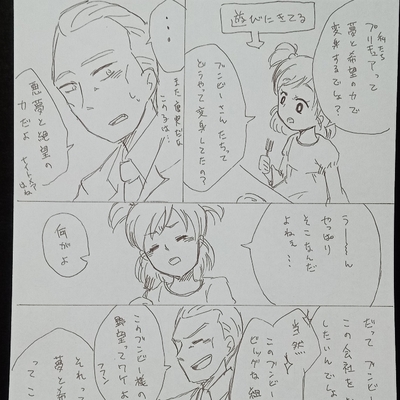 私たち
プリキュアって
夢と希望の力で
変身するでしょ?
遊びにきてる
ブンビーさんたちって
どうやって変身してたの?
・・・
また唐突だな
このコは…
悪夢と絶望の
力だよ
うーーん
やっぱり
そこなんだ
よねぇ…
何がよ
だって ブンビー
この会社を
したいんでしょ
当然
このブンビー
ビッグな組
このブンビー様の
野望ってワケよ
フフン
それって
夢と希
ってこ